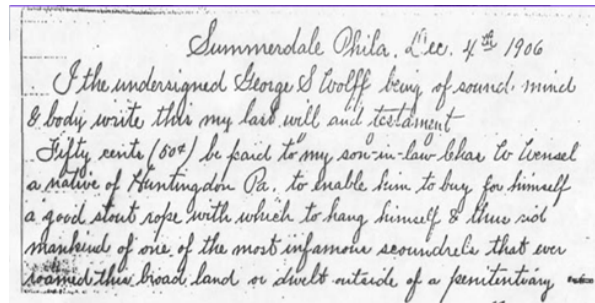 Summerdale Phila. Dec. 4th 1906
I the undersigned George S Wolff being of sound mind
& body write this my last will and testament
Fifty cents (50¢) be paid to my son-in-law Chas W Wensel
a native of Huntingdon Pa. to enable him to buy for himself
a good stout rope with which to hang himself & thus rid
mankind of one of the most infamous scoundrels that ever
roamed this broad land or dwelt outside of a penitentiary